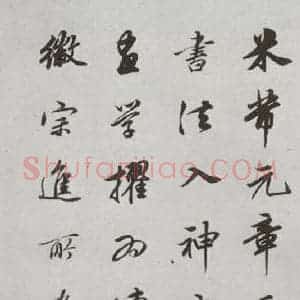 米芾元章
書法入神
畫學擢為
徽宗進所
Shufaziliao.COM